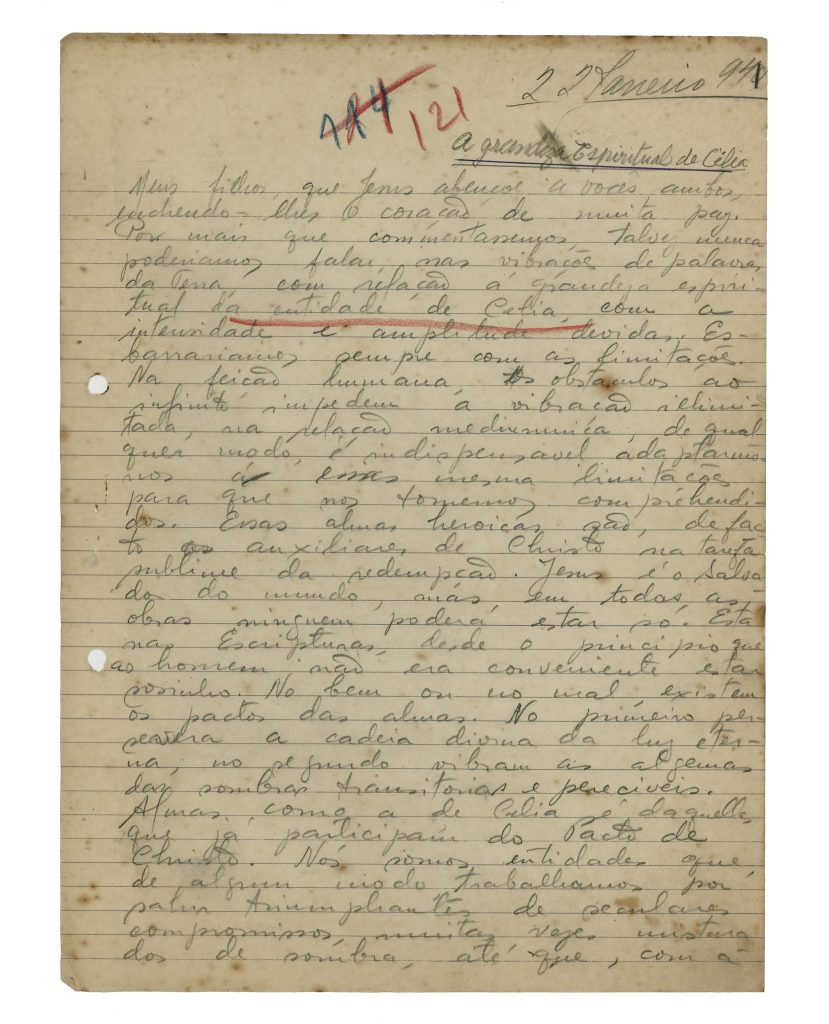 22 Janeiro 941
114
121
A grandeza Espiritual de Célia
Meus filhos, que Jesus abençôe a vocês ambos,
enchendo-lhes o coração de muita paz.
Por mais que commentassemos, talvez nunca
poderiamos falar nas vibrações de palavras
da Terra, com relação á grandeza espiri-
tual da entidade de Celia, com a
intensidade e amplitude devidas. Es-
barrariamos sempre com as limitações.
Na feição humana os obstaculos ao
infinito impedem a vibração illimi-
tada, na relação mediumnica, de qual
quer modo, é indispensavel adaptarmo-
nos á essas mesma limitações
para que nos tornemos comprehendi-
dos. Essas almas heroicas são, de fac
to os auxiliares de Christo na tarefa
sublime da redempção. Jesus é o Salva
dos do mundo, mas, em todas as
obras ninguem poderá estar só. Está
nas Escripturas, desde o principio que
ao homem não era conveniente estar
sosinho. No bem ou no mal, existem
os pactos das almas. No primeiro per-
severa a cadeia divina da luz eter-
na, no segundo vibram as algemas
das sombras transitorias e pereciveis.
Almas, como a de Celia é daquellas
que já participam do Pacto de
Christo. Nós somos entidades que,
de algum modo trabalhamos por
sahir triumphantes de seculares
compromissos, muitas vezes mistura
dos de sombra, até que, com a